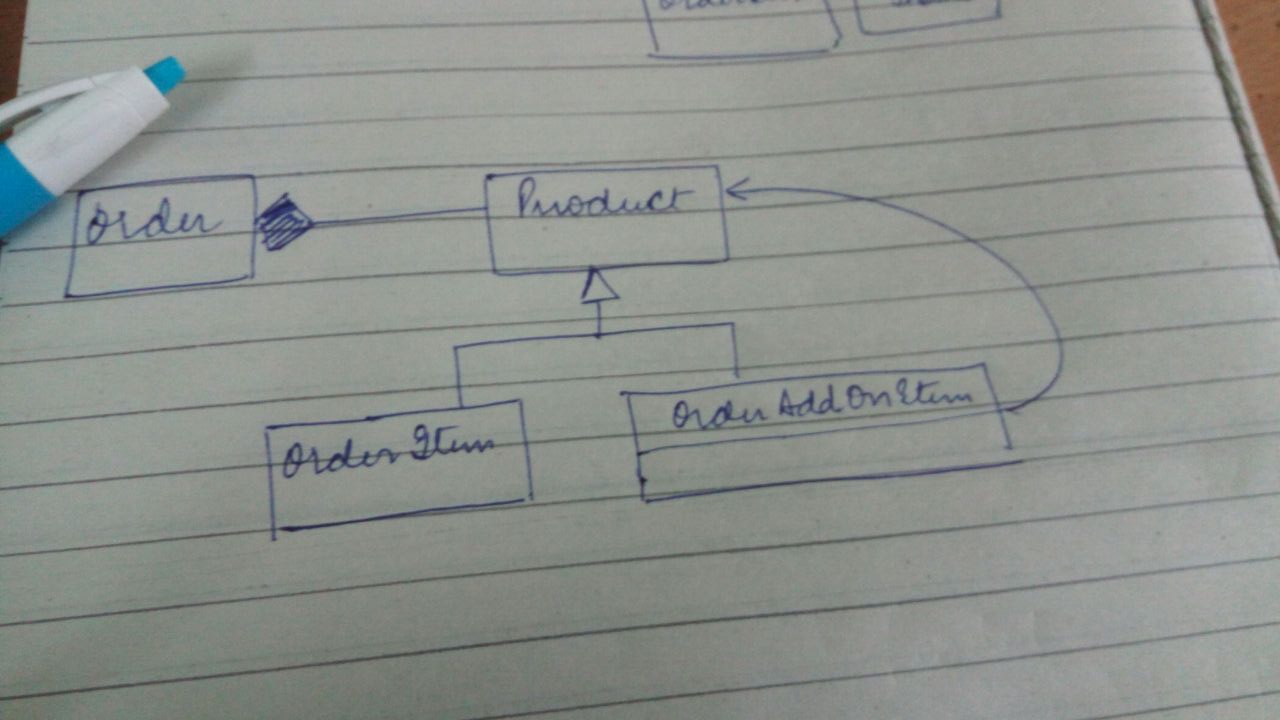 Order
Product
OrderItem
OrderAddOnItem